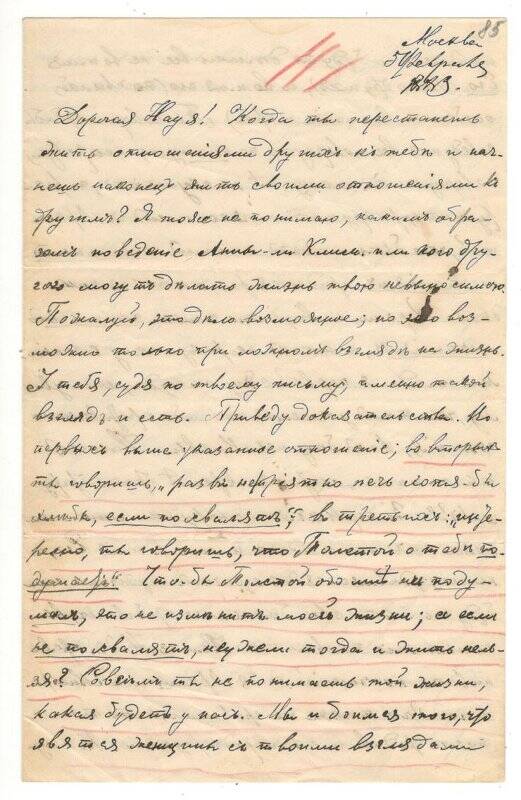 85
Москва
5 Февраля
Дорогая Надя! Когда ты перестанешь
жить отношеніями другихъ къ тебѣ и нач-
нешь наконецъ жить своими отношеніями къ
другимъ? Я тоже не понимаю, какимъ обра-
зомъ поведеніе Анны-ли Клим. или кого дру-
гого могутъ дѣлать жизнь твою невыносимою.
Пожалуй, это дѣло возможное; но это воз-
можно только при ложномъ взглядѣ на жизнь.
У тебя, судя по твоему письму, именно такой
взглядъ и есть. Приведу доказательства. Во
первыхъ выше указанное отношеніе; во вторыхъ
ты говоришь, "развѣ непріятно печь хотя-бы
хлѣбы, если похвалятъ"; въ третьихъ: "инте-
ресно, ты говоришь, что Толстой о тебѣ по-
думаетъ". Что-бы Толстой обо мнѣ ни поду-
малъ, это не измѣнитъ моей жизни; а если
не похвалятъ, неужели тогда и жить нель-
зя? Совсѣмъ ты не понимаешь той жизни,
какая будетъ у насъ. Мы и боимся того, что
явятся женщины съ твоими взглядами